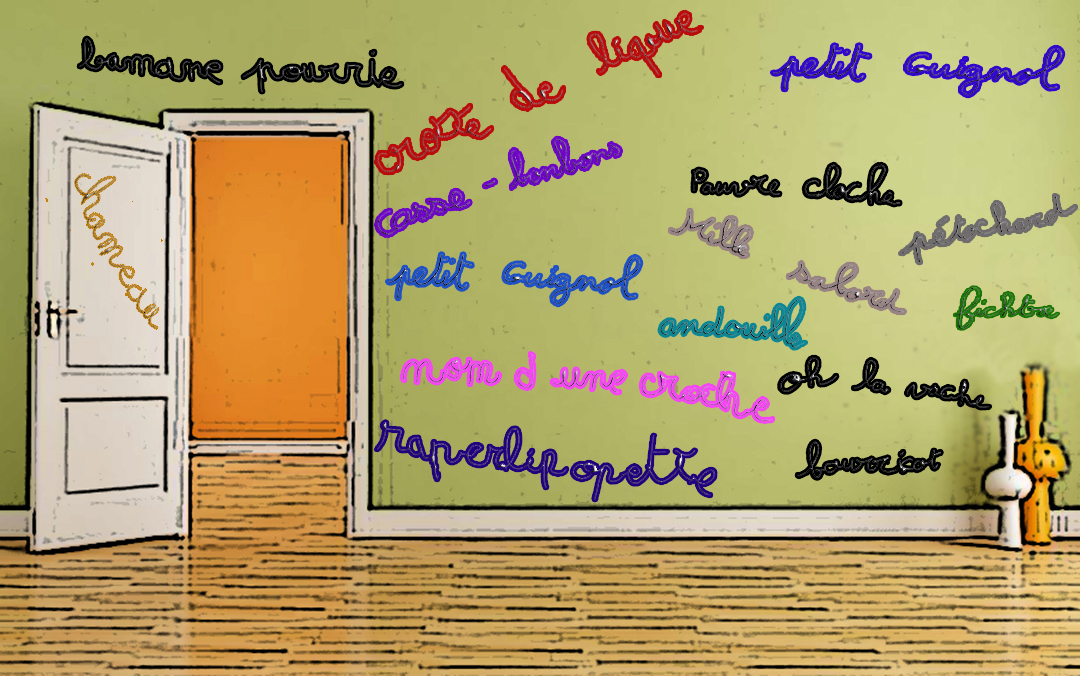 bamane pourrie
crotte de lique
petit Guignol
casse-bonbons
Pauvre cloche
chameau
Mille
sabord
pétochard
petit Guignol
fichtre
andouille
nom d une croche
oh la vache
raperlipopette
bourricot